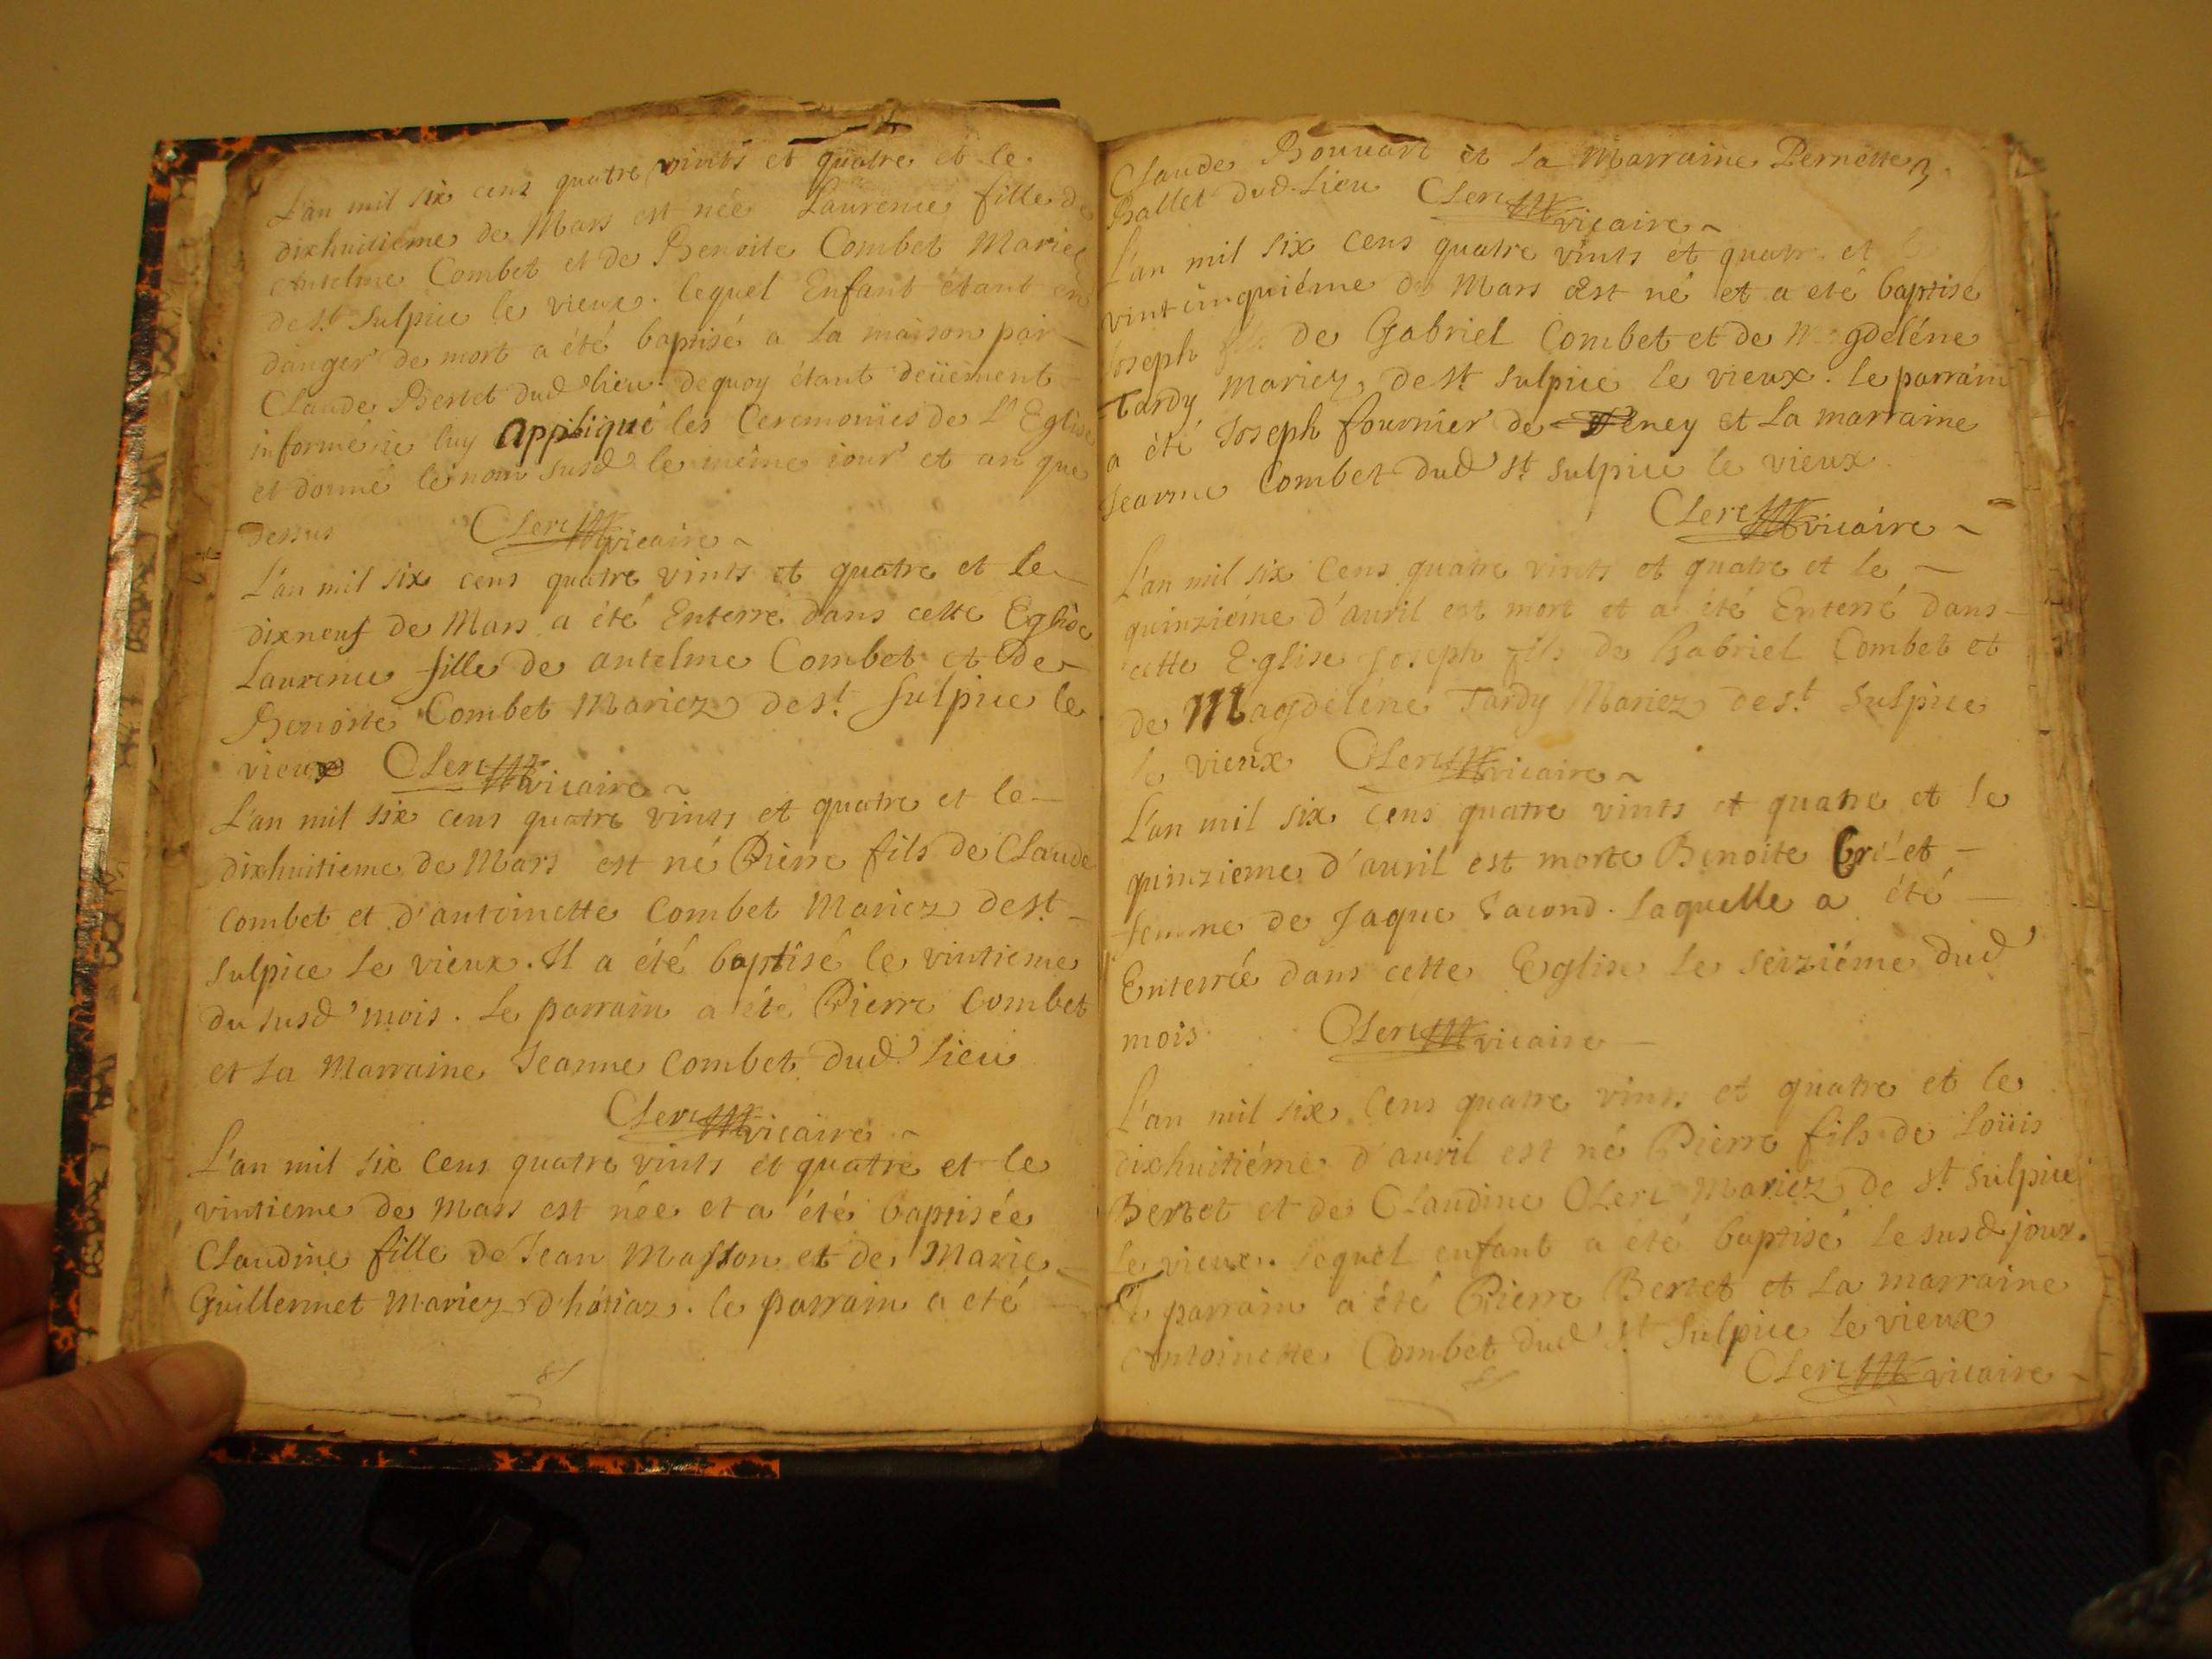 L'an mil six cens quatre vints et quatre et le
dixhuitiéme de Mars est née Laurence fille de
Antelme Combet et de Benoite Combet Mariez
de st. Sulpice le vieux. lequel Enfant étant en
danger de mort a été baptisé a la maison par
Claude Bertet dud lieu. dequoy étant deüement
informé ie luy appliqué les Ceremonies de L'Eglise
et donné le nom susd le même iour et an que
dessus Clerc vicaire
L'an mil six cens quatre vints et quatre et le
dixneuf de Mars a été Enterré dans cette Eglise
Laurence fille de antelme Combet et de
Benoite Combet Mariez de st. Sulpice le
vieux Clerc vicaire
L'an mil six cens quatre vints et quatre et le
dixhuitieme de Mars est né Pierre fils de Claude
Combet et d'antoinette Combet Mariez de st.
Sulpice le vieux. Il a été baptisé le vintieme
du susd mois. Le parrain a été Pierre Combet
et la Marraine Jeanne Combet dud lieu
Clerc vicaire
L'an mil six Cens quatre vints et quatre et le
vintieme de Mars est née et a été baptisée
Claudine fille de Jean Masson et de Marie
Guillermet Mariez. le parrain a eté
Claude Bouvart et la Marraine Pernette 3.
Ballet dud. Lieu Clerc vicaire
L'an mil six cens quatre vints et quatre et
vint cinquiéme de Mars est né et a eté baptisé
Joseph fils de Gabriel Combet et de Magdeléne
Tardy Mariez de st. Sulpice le vieux. le parrain
a été Joseph fournier de et La marraine
Jeanne Combet dud st. Sulpice le vieux
Clerc vicaire
L'an mil six Cens quatre vints et quatre et le
quinziéme d'avril est mort et a été Enterré dans
cette Eglise Joseph fils de Gabriel Combet et
de Magdeléne Tardy Mariez de st. Sulpice
le vieux Clerc vicaire
L'an mil six Cens quatre vints et quatre et le
quinzieme d'avril est morte Benoite
femme de Jaque. laquelle a été
Enterrée dans cette Eglise le seiziéme dud
mois Clerc vicaire
L'an mil six Cens quatre vints et quatre et le
dixhuitiéme d'avril est né Pierre fils de Loüis
Bertet et de Claudine Clerc Mariez de st. Sulpice
le vieux. lequel enfant a été baptisé le susd jour.
Le parrain a été Pierre Bertet et la marraine
Antoinette Combet dud st Sulpice le vieux
Clerc vicaire